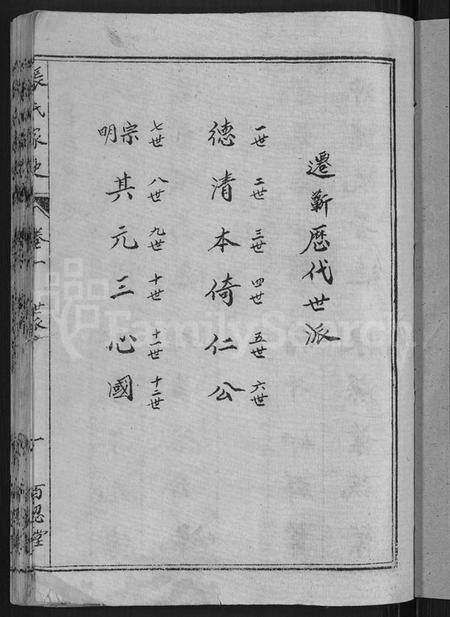 遷蕲歷代世派
一世 二世 三世 四世 五世 六世
德清本倚仁公
七世 八世 九世 十世 十一世 十二世
宗明 其元三心國
張氏家史 卷一 世派 一 百忍堂
FamilySearch